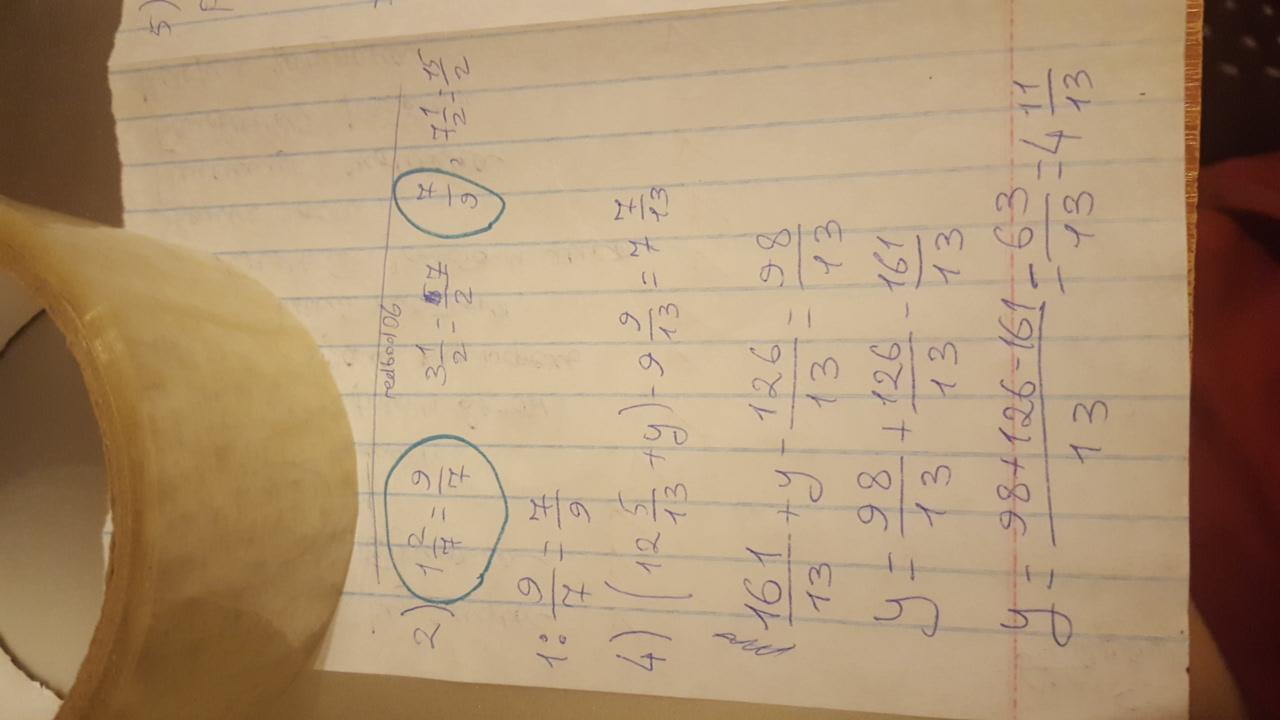 5)
redboo106
2) 1 2/7 = 9/7 3 1/2 = 7/2 7/9, 7 1/2 = 15/2
1: 9/7 = 7/9
4) (12 5/13 + y) - 9 9/13 = 7 7/13
161/13 + y - 126/13 = 98/13
y = 98/13 + 126/13 - 161/13
y = 98+126-161/13 = 63/13 = 4 11/13